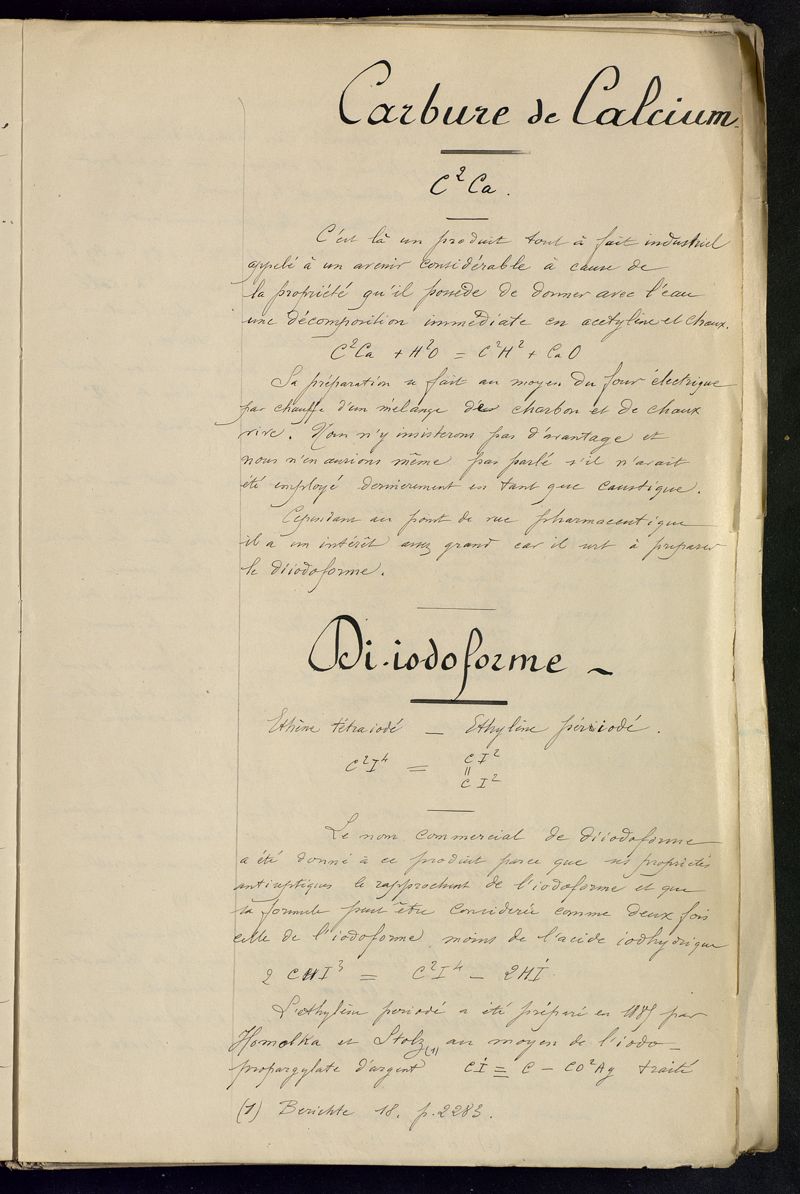 Carbure de Calcium.
C²Ca.
C'est là un produit tout à fait industriel
appelé à un avenir considérable à cause de
la propriété qu'il possède de donner avec l'eau
une décomposition immédiate en acétylène et chaux.
C²Ca + H²O = C²H² + CaO
Sa préparation se fait au moyen du four électrique
par chauffe d'un mélange de charbon et de chaux
vive. Nous n'y insisterons pas d'avantage et
nous n'en aurions même pas parlé s'il n'avait
été employé dernièrement en tant que caustique.
Cependant au point de vue pharmaceutique
il a un intérêt assez grand car il sert à préparer
le diiodoforme.
Di-iodoforme
Ethène tétraiodé — Ethylène périodé.
C²I⁴ = CI²
||
CI²
Le nom commercial de diiodoforme
a été donné à ce produit parce que ses propriétés
antiseptiques le rapprochent de l'iodoforme et que
sa formule peut être considérée comme deux fois
celle de l'iodoforme moins de l'acide iodhydrique
2 CHI³ = C²I⁴ - 2HI.
L'éthylène periodé a été préparé en 1885 par
Homolka et Stolz (1) au moyen de l'iodo-
propargylate d'argent CI ≡ C - CO²Ag traité
(1) Berichte 18. p. 2283.